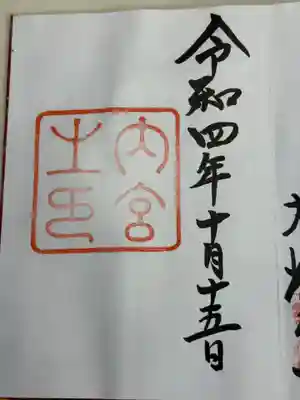 令和四年十月十五日
内宮
之印